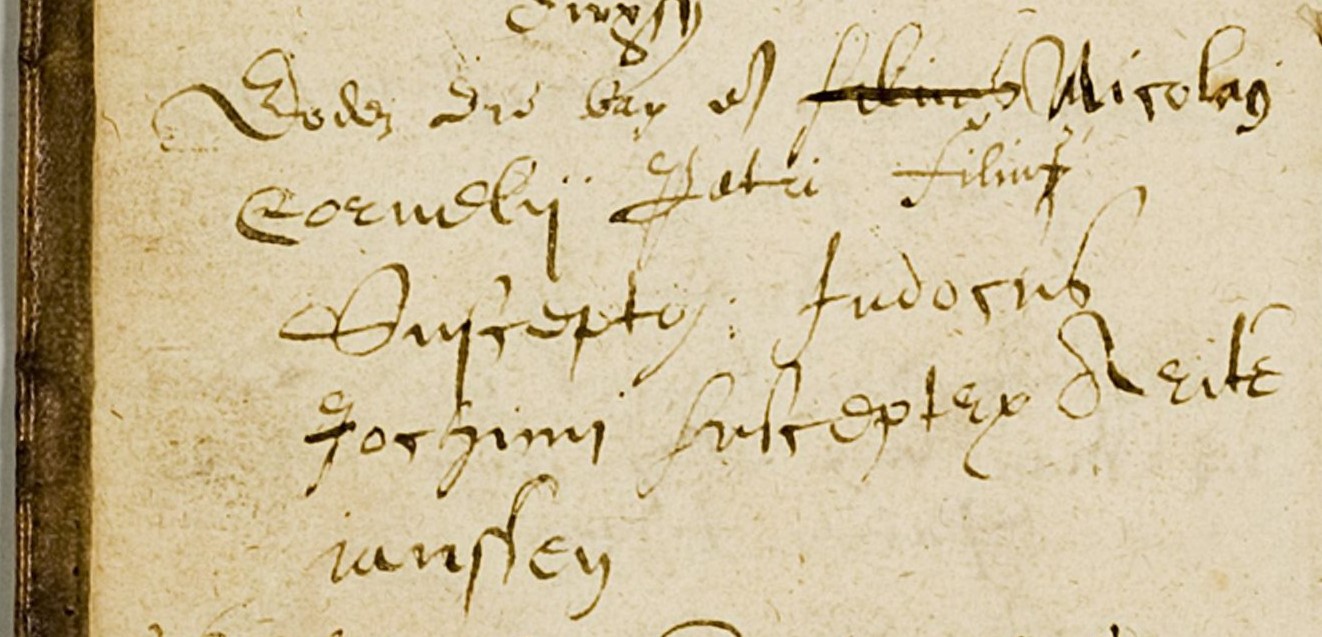 Eodem die bap est filius Nicolaus
Cornelij Petri filius
Susceptor: Judocus
Jochimi susceptrix Neilke
ianssen